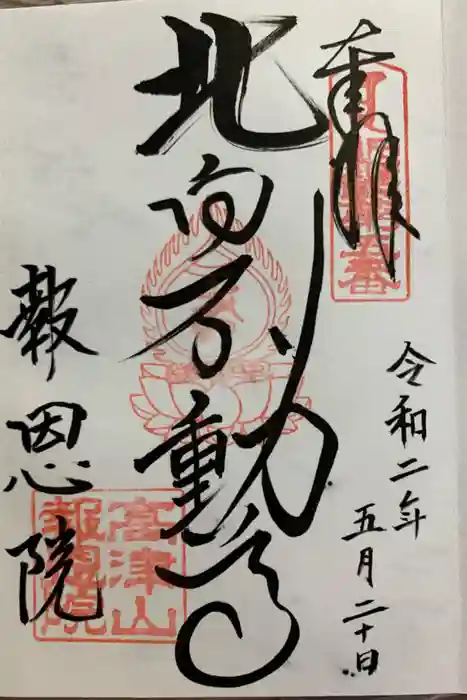 奉拝
令和二年
五月二十日
北向不動尊
報恩院
高津山
報恩院